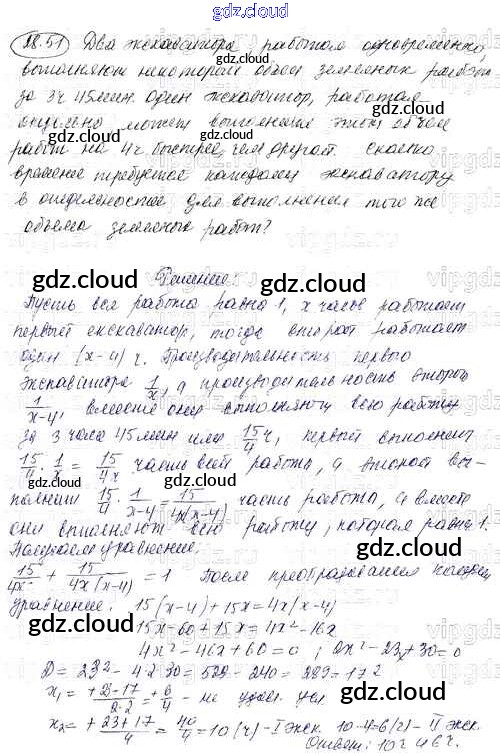 gdz.cloud
28.51 Два экскаватора, работая одновременно,
выполняют некоторый объем земляных работ
за 3ч 45мин. Один экскаватор, работая
отдельно может выполнить этот объем
работ на 4ч. быстрее, чем другой. сколько
времени требуется каждому экскаватору
в отдельности для выполнения того же
объема земляных работ?
Решение:
gdz.cloud gdz.cloud
Пусть вся работа равна 1, x часов работает
первый екскаватор, тогда второй работает
один (x-4) ч. Производительность первого
экскаватора 1/x, а производительность второго
1/(x-4), вместе они выполняют всю работу
за 3 часа 45 мин или 15/4 ч, первый выполнит
15/4 · 1/x = 15/4x часть всей работы, а второй вы-
полнит 15/4 · 1/(x-4) = 15/4(x-4) часть работы, а вместе
они выполняют всю работу, которая равна 1.
Получаем уравнение:
gdz.cloud
15/4x + 15/4x(x-4) = 1 После преобразования получим
уравнение: 15(x-4)+15x=4x(x-4)
gdz.cloud
15x-60+15x=4x²-16x
gdz.cloud
4x²-46x+60=0; 2x²-23x+30=0
D=23²-4·2·30=529-240=289=17²
x₁=+23-17/2·2=+6/4 - не удовл. усл
gdz.cloud
x₂=+23+17/4=40/4=10(ч)-I экск. 10-4=6(ч)-II экс.
Ответ: 10ч 6ч.
gdz.cloud